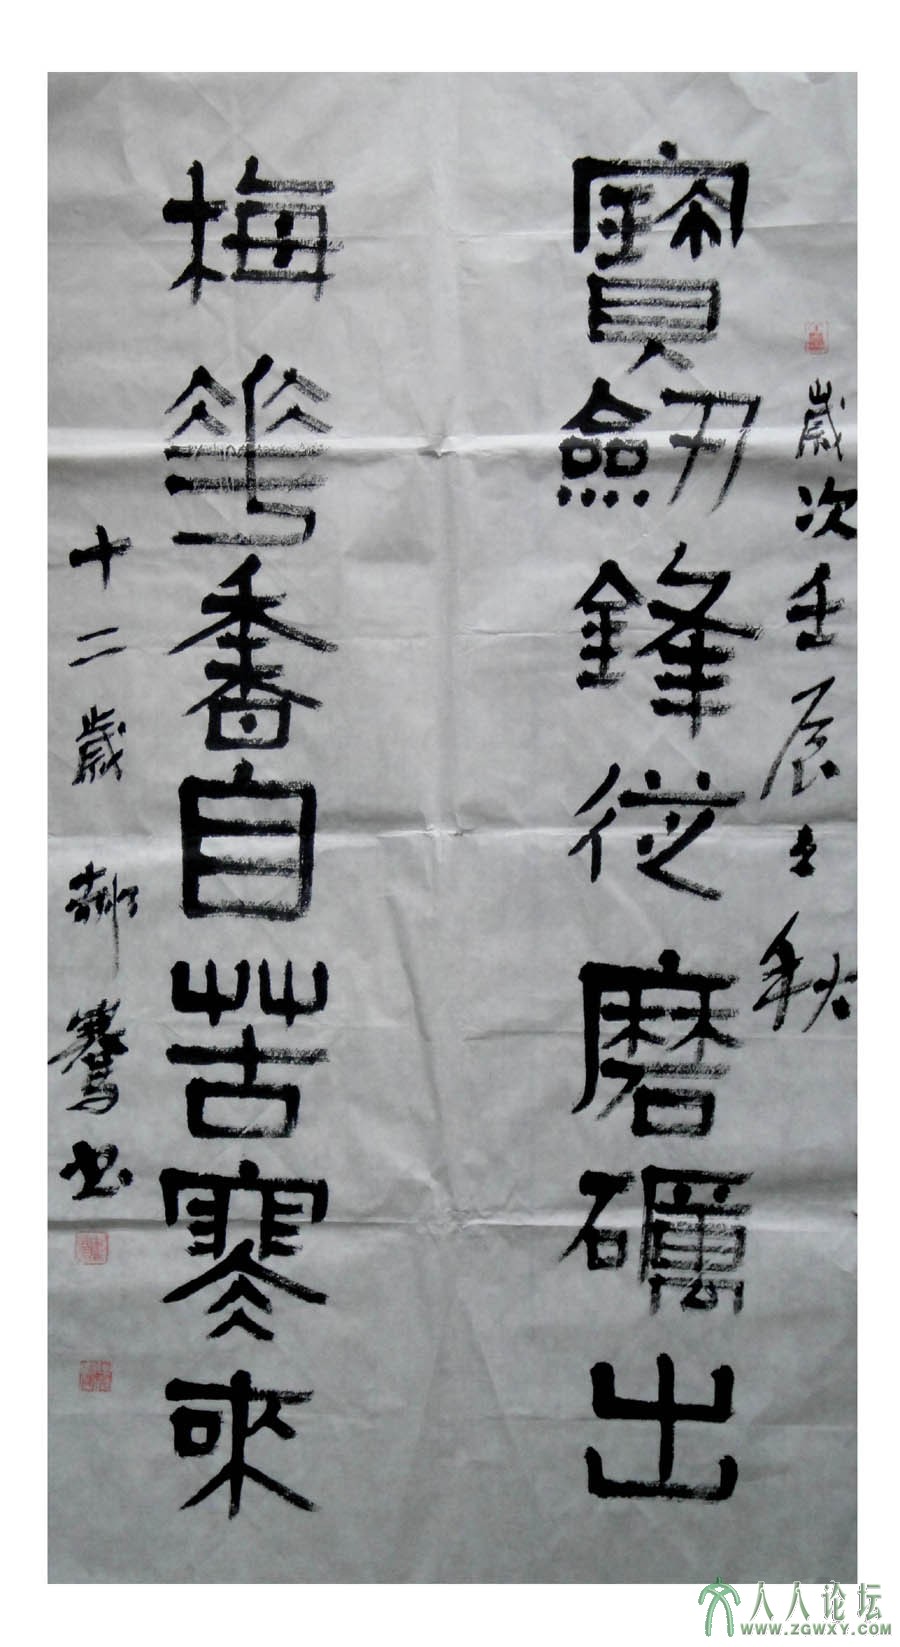 歲次壬辰之秋
寶劒鋒從磨礪出
梅華香自苦寒來
十二歲郝騫书
人人论坛
WWW.ZGWXY.COM